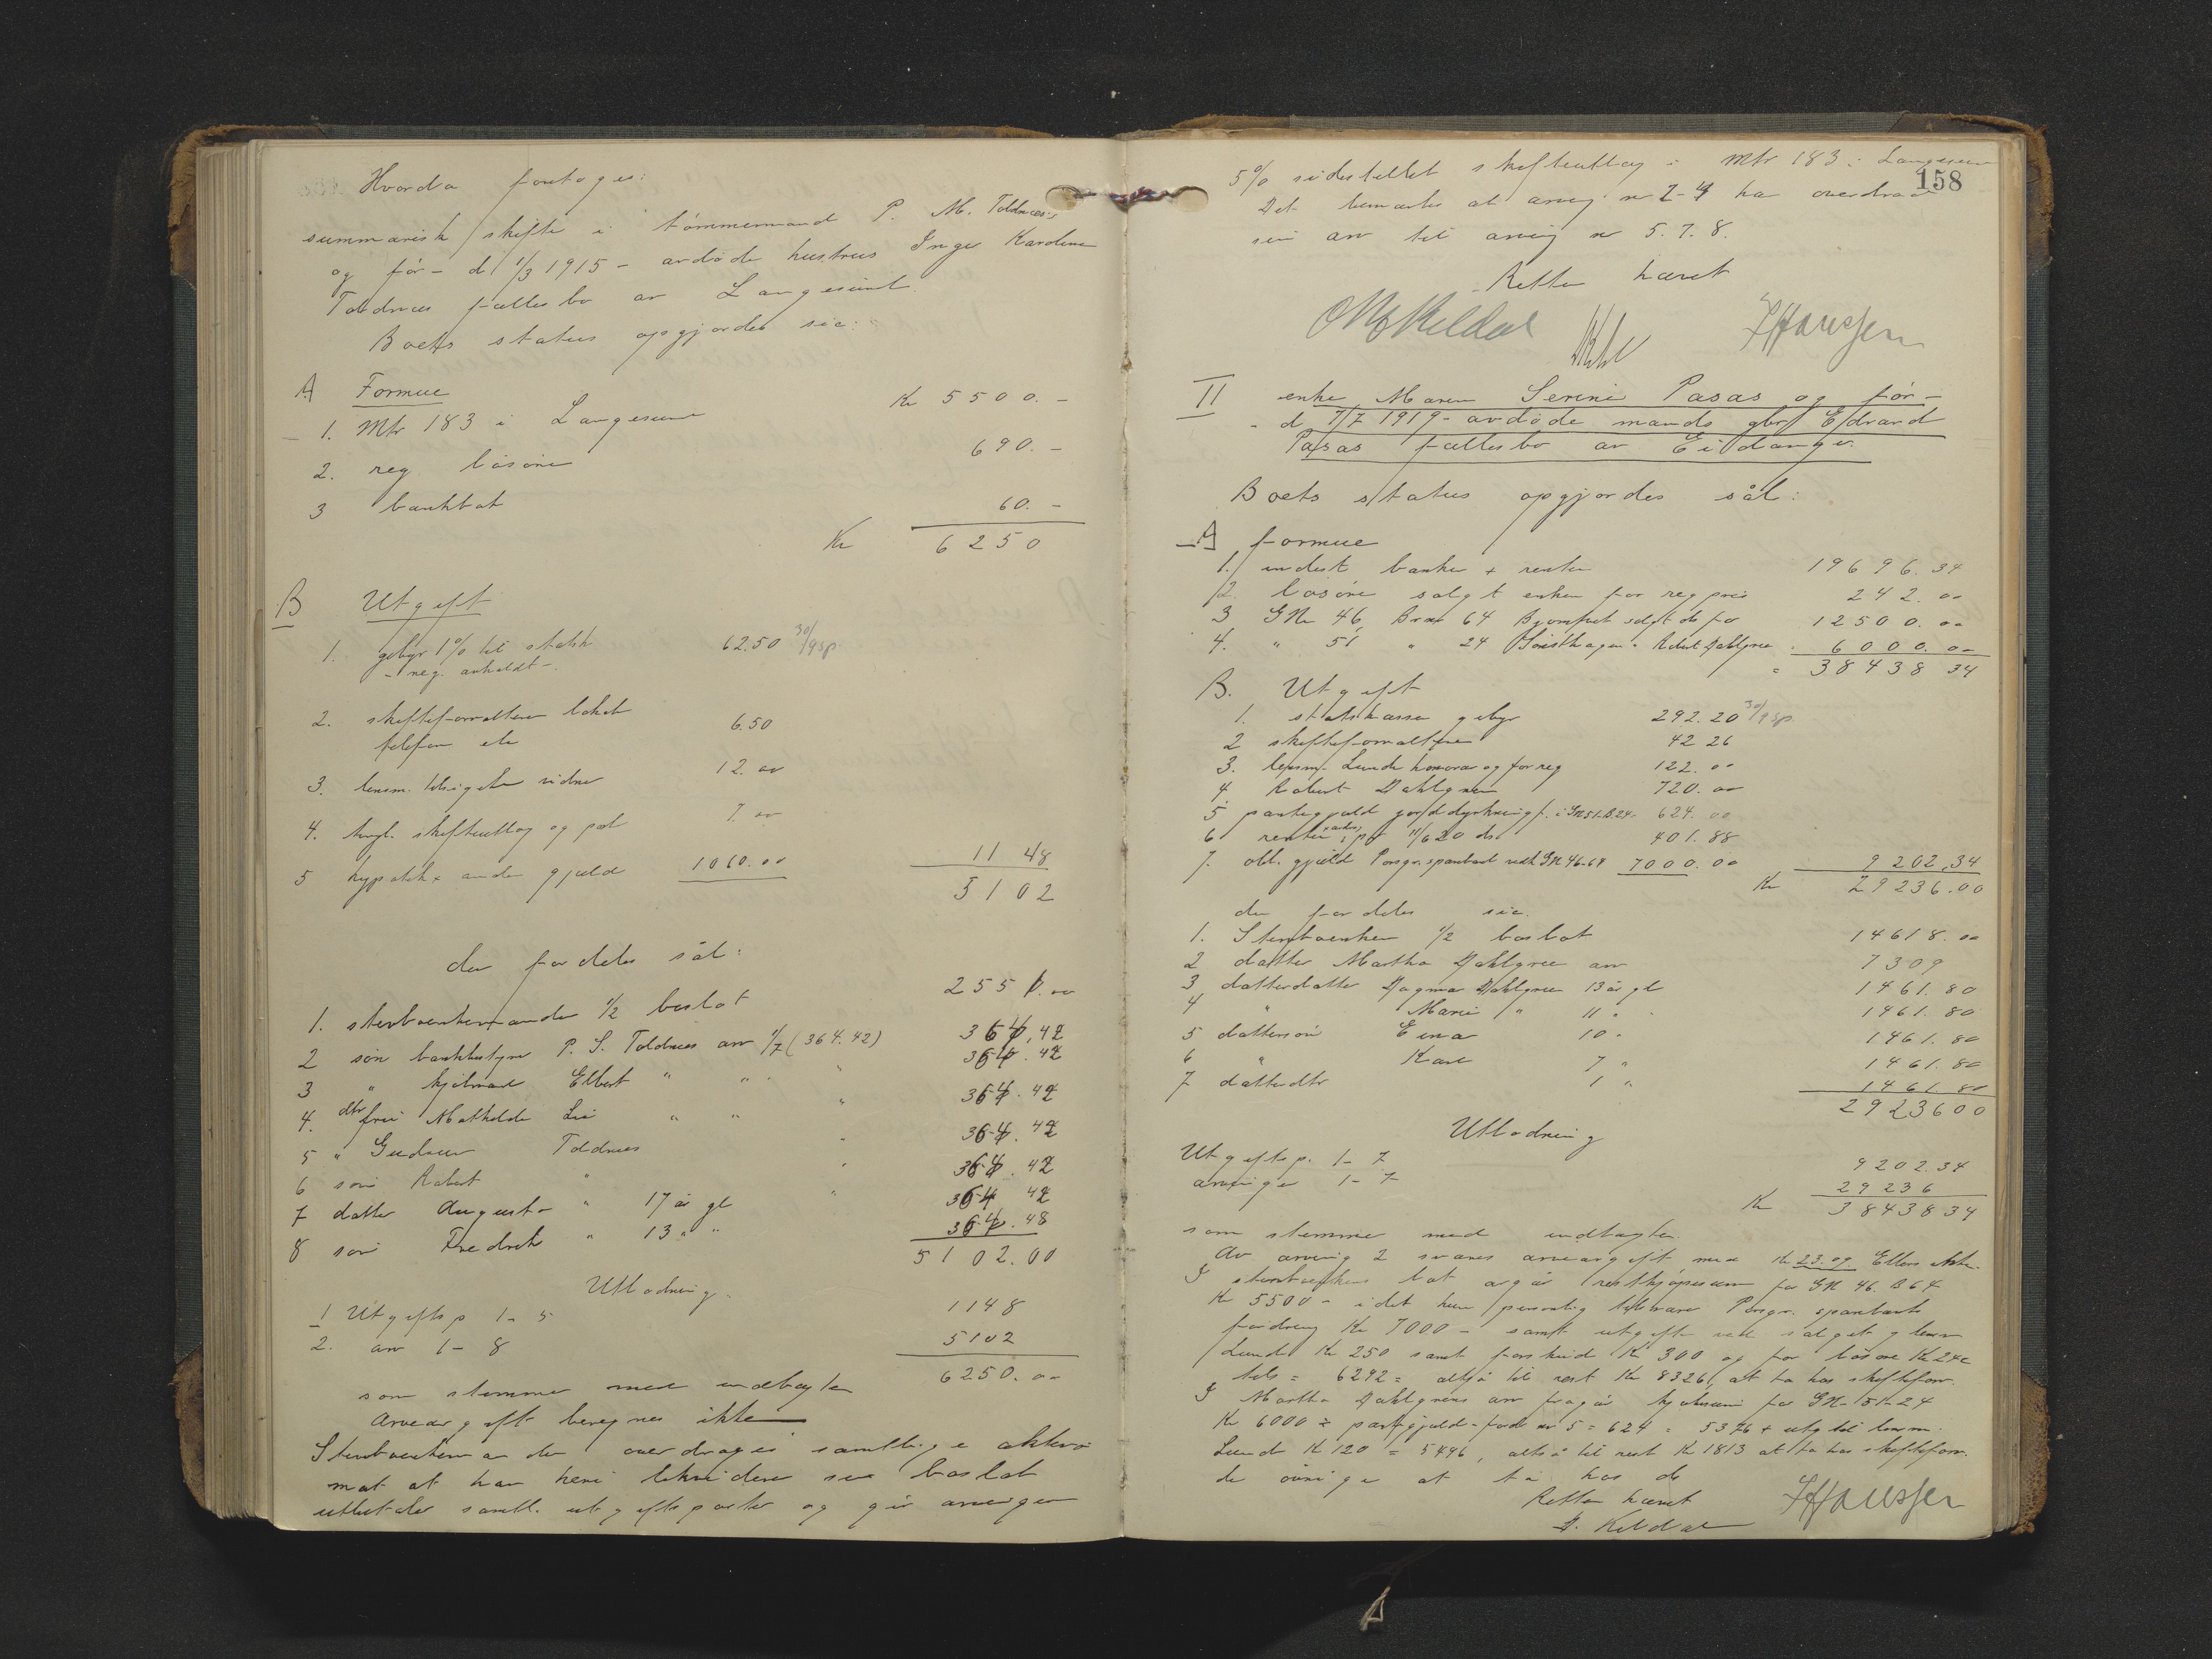 Hvorda foretoges:
summarisk skifte i tømmermand P. M. Toldnæs's
og før - d 1/3 1915 - avdøde hustrus Inger Karoline
Toldnæs fællesbo av Langesund.
Boets status opgjordes sål:
A Formue
1. Mtr 183 i Langesund Kr 5500.-
2. reg. løsøre 690.-
3 bankbok 60.-
Kr 6250
B Utgift
1. gebyr 1% til statsk 62.50 30/9 sp.
- reg. anholdt -
2. skifteforvalteren lokale 6.50
telefon etc
3. lensm. tilsigelse vidner 12.00
4. tingl. skifteutlæg og pot 7.00
5 hypotek + anden gjæld 1060.00 1148
5102
der fordeles sål:
1. stervboenkemanden 1/2 boslot 2551.00
2 søn bankbestyrer P. S. Toldnæs arv 1/7 (364.42) 364.42
3 " Elbert " " " 364.42
4. dtr frue Mathilde Lie " " " 364.42
5 " Gudrun Toldnæs " 364.42
6 søn Robert " " 364.42
7 datter Augusta " 17 år gl " 364 42
8 søn Fredrik " 13 " " 364.48
5102.00
Utlodning.
1 Utgiftsp 1-5 1148
2. arv 1-8 5102
6250.00
som stemmer med indtægten
Arveavgift beregnes ikke
Stervboenkemanden overdrages samtlige aktiva
mot at han heri likviderer sin boslot
utbetaler samtl. utgiftsposter og gir arvingen
158
5% sidestillet skifteutlæg i Mtr 183 i Langesund
Det bemærkes at arving nr 2-4 har overdraget
sin arv til arving nr 5. 7. 8.
Retten hævet
O M Kildal
H Hanssen
II enke Maren Serine Pasas og før -
- d 7/7 1919 - avdøde mands gbr Edvard
Pasas fællesbo av Eidanger.
Boets status opgjordes sål:
A formue
1. indest. banker + renter 19696.34
2. løsøre solgt enken for reg pris 242.00
3 GNr 46 Brnr 64 solgt do for 12500.00
4. " 51 " 24 Robert Dahlgren 6000.00
" 38438 34
B. Utgift
1. statskassen gebyr 292.20 30/9 sp.
2 skifteforvalteren 42 26
3. lensm. Lunde honorar og forreg 122.00
4. Robert Dahlgren 720.00
5 pantegjæld jorddyrkningsf. i GN 51-B.24 624.00
6 renter pr 11/6 20 do. 401.88
7. obl. gjæld Porsgr. sparebank vedk GN 46-64 7000.00 9202.34
Kr 29236.00
der fordeles sål.
1. Stervboenken 1/2 boslot 14618.00
2 datter Martha Dahlgren arv 7309
3 datterdatter Dagmar Dahlgren 13 år gl 1461.80
4 " Marie " 11 " 1461.80
5 dattersøn Einar 10 " 1461.80
6 " Karl 7 " 1461.80
7 datterdtr 1 " 1461.80
29236 00
Utlodning
Utgiftsp. 1-7 9202.34
arvinger 1-7 29236
Kr 38438 34
som stemmer med indtægten.
Av arving 2 svares arveavgift med Kr 23.09. Ellers ikke.
I stervboenkens lot avgår restkjøpesum for GN 46 B 64
Kr 5500 - idet hun personlig tilsvarer Porsgr. sparebanks
fordring Kr 7000 - samt utgifter ved salget g lensm
Lunde Kr 250 samt forskud Kr 300 og for løsøre Kr 242
tils = 6292 = altså til rest Kr 8326 at ta hos skifteforv.
I Martha Dahlgrens arv fragår kjøbesum for GN 51-24
Kr 6000 ÷ pantegjæld - post nr 5 = 624 = 5376 + utg til lensm.
Lunde Kr 120 = 5496, altså til rest Kr 1813 at ta hos skifteforv.
de øvrige at ta hos do
Retten hævet H Hanssen
Kildal